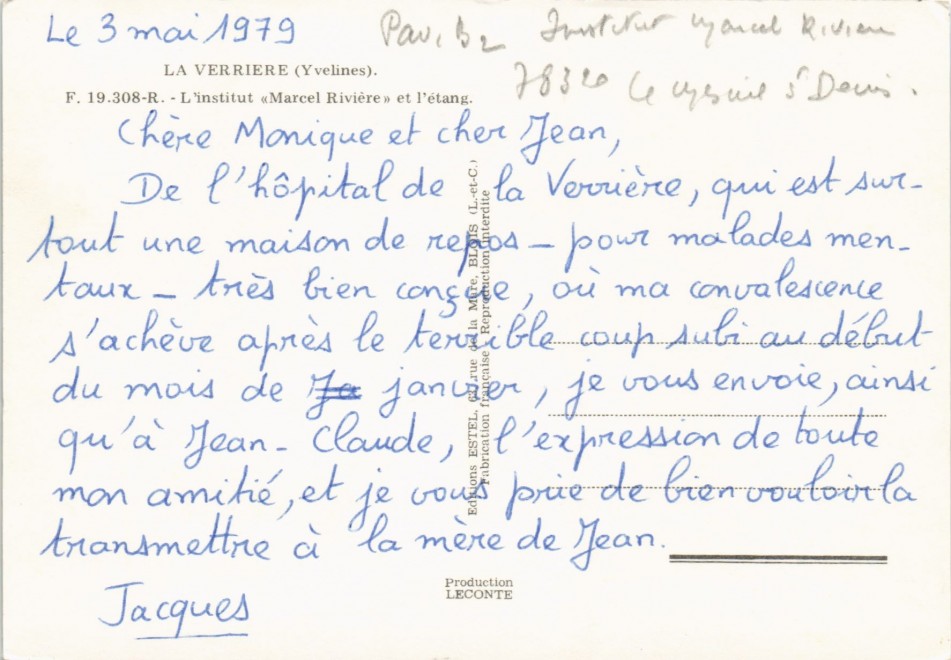 Le 3 mai 1979
Pav. B2 Institut Marcel Rivière
78320 Le Mesnil St Denis.
LA VERRIERE (Yvelines).
F. 19.308-R. - L'institut «Marcel Rivière» et l'étang.
Chère Monique et cher Jean,
De l'hôpital de la Verrière, qui est sur-
tout une maison de repos — pour malades men-
taux — très bien conçue, où ma convalescence
s'achève après le terrible coup subi au début
du mois de Ja janvier, je vous envoie, ainsi
qu'à Jean-Claude, l'expression de toute
mon amitié, et je vous prie de bien vouloir la
transmettre à la mère de Jean.
Jacques
Editions ESTEL, rue de la Mare, BLOIS (L.-et-C.)
Fabrication française - Reproduction interdite
Production
LECONTE